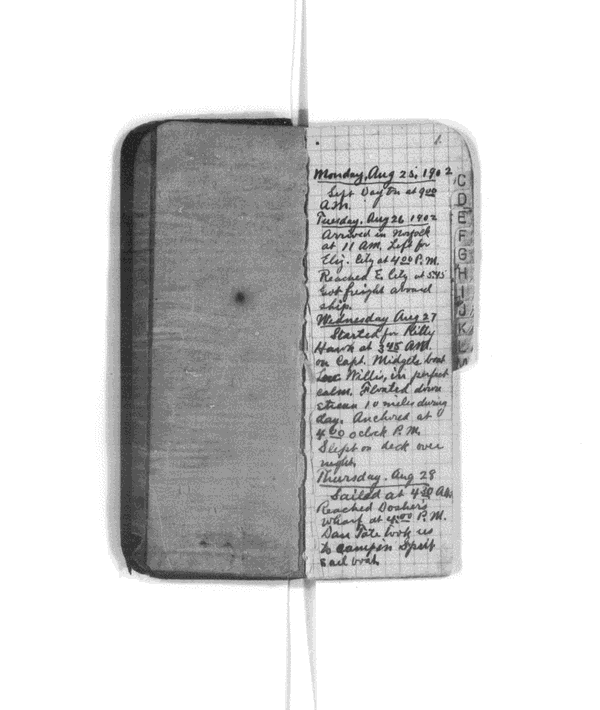 1.
Monday, Aug 25, 1902
Left Dayton at 9:00
A.M.
Tuesday, Aug 26 1902
Arrived in Norfolk
at 11 AM, Left for
Eliz. City at 4:00 P.M.
Reached E. City at 5:45
Got freight aboard
ship.
Wednesday Aug 27
Started for Kitty
Hawk at 3:45 AM.
on Capt. Midgets boat
Willis, in perfect
calm. Floated down
stream 10 miles during
day. Anchored at
4:00 o clock P.M.
Slept on deck over
night.
Thursday. Aug 28
Sailed at 4:30 AM.
Reached Dosher's
wharf at 4:00 P.M.
Dan Tate took us
to camp in Spritt
sail boat.
C
D
E
F
G
H
I
J
K
L
M